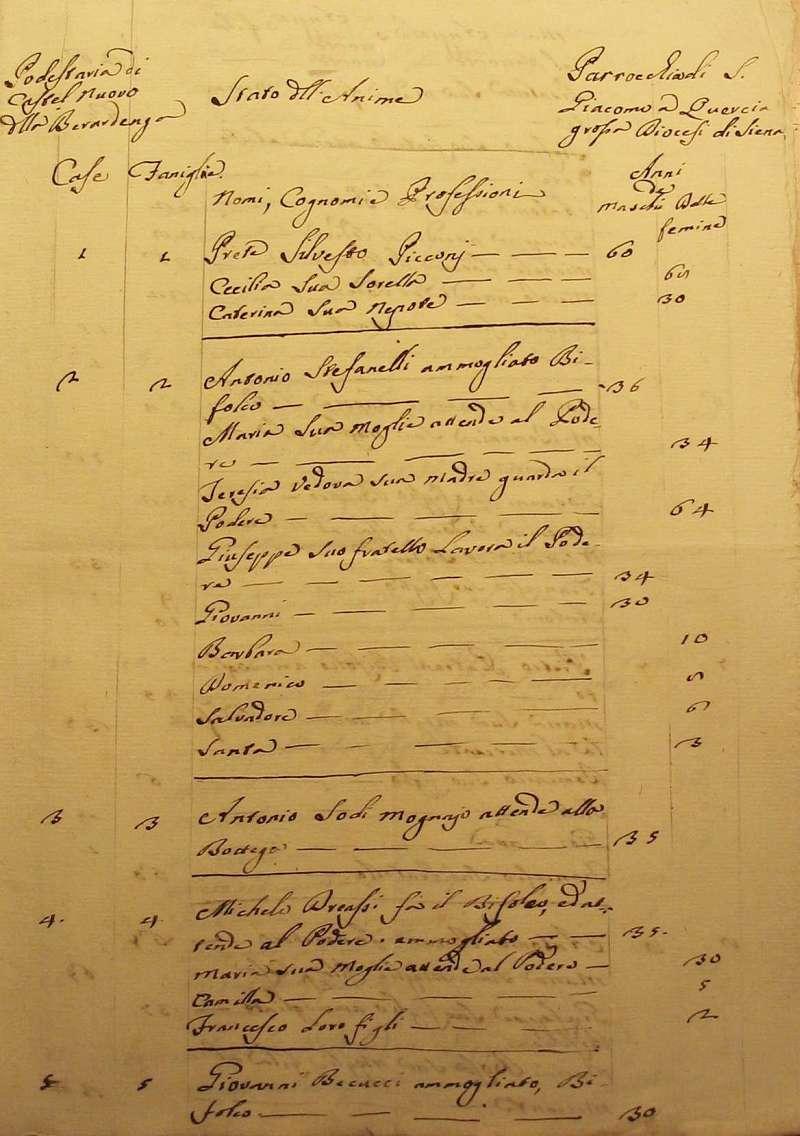 Podestaria di
Castel Nuovo
dlla Berardenga
Stato dll'Anime
Parrocchia di S.
Giacomo a Quercia
grossa Diocesi di Siena
Case Famiglie
Nomi, Cognomi e Professioni
Anni
de Maschi Delle
femine
1 1 Prete Silvestro Picconj — — — 60
Cecilia Sua Sorella — — —
Caterina Sua Nepote — — — 30
2 2 Antonio Stefanelli ammogliato Bi-
folco — — — — 36
Maria Sua Moglie attende al Pode-
re — — — — — 34
Teresia Vedova sua Madre guarda il
Podere — — — — — 64
Giuseppe suo fratello Lavora il Pode-
re — — — — — — 34
Giovanni — — — — — 30
Barbara — — — — — 10
Domenico — — — — —
Salvadore — — — — 6
Santa — — — — 3
3 3 Antonio Sodi attende alla
Bottega — — — — 35
4. 4 Michele fà il Bifolco, ed at-
tende al Podere. ammogliato — — 35.
Maria sua Moglie attende al Podere — 30
Camilla — — — — — 5
Francesco Loro figli — — — 2
5 5 Giovanni Becucci ammogliato, Bi-
folco — — — — 30